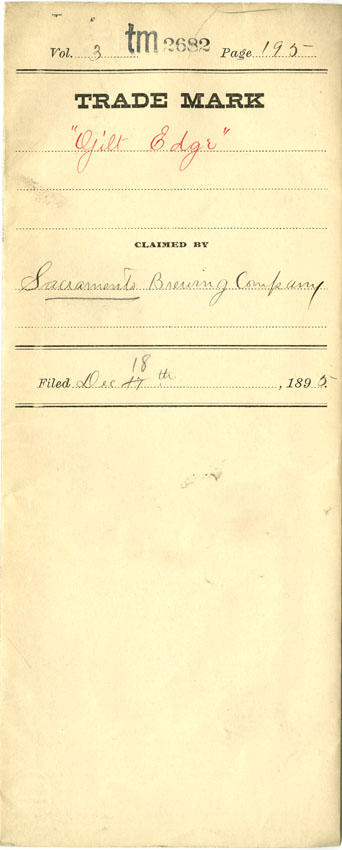 Vol. 3 tm 2682 Page 195
TRADE MARK
"Gilt Edge"
CLAIMED BY
Sacramento Brewing Company
Filed Dec 18 17 th, 1895.